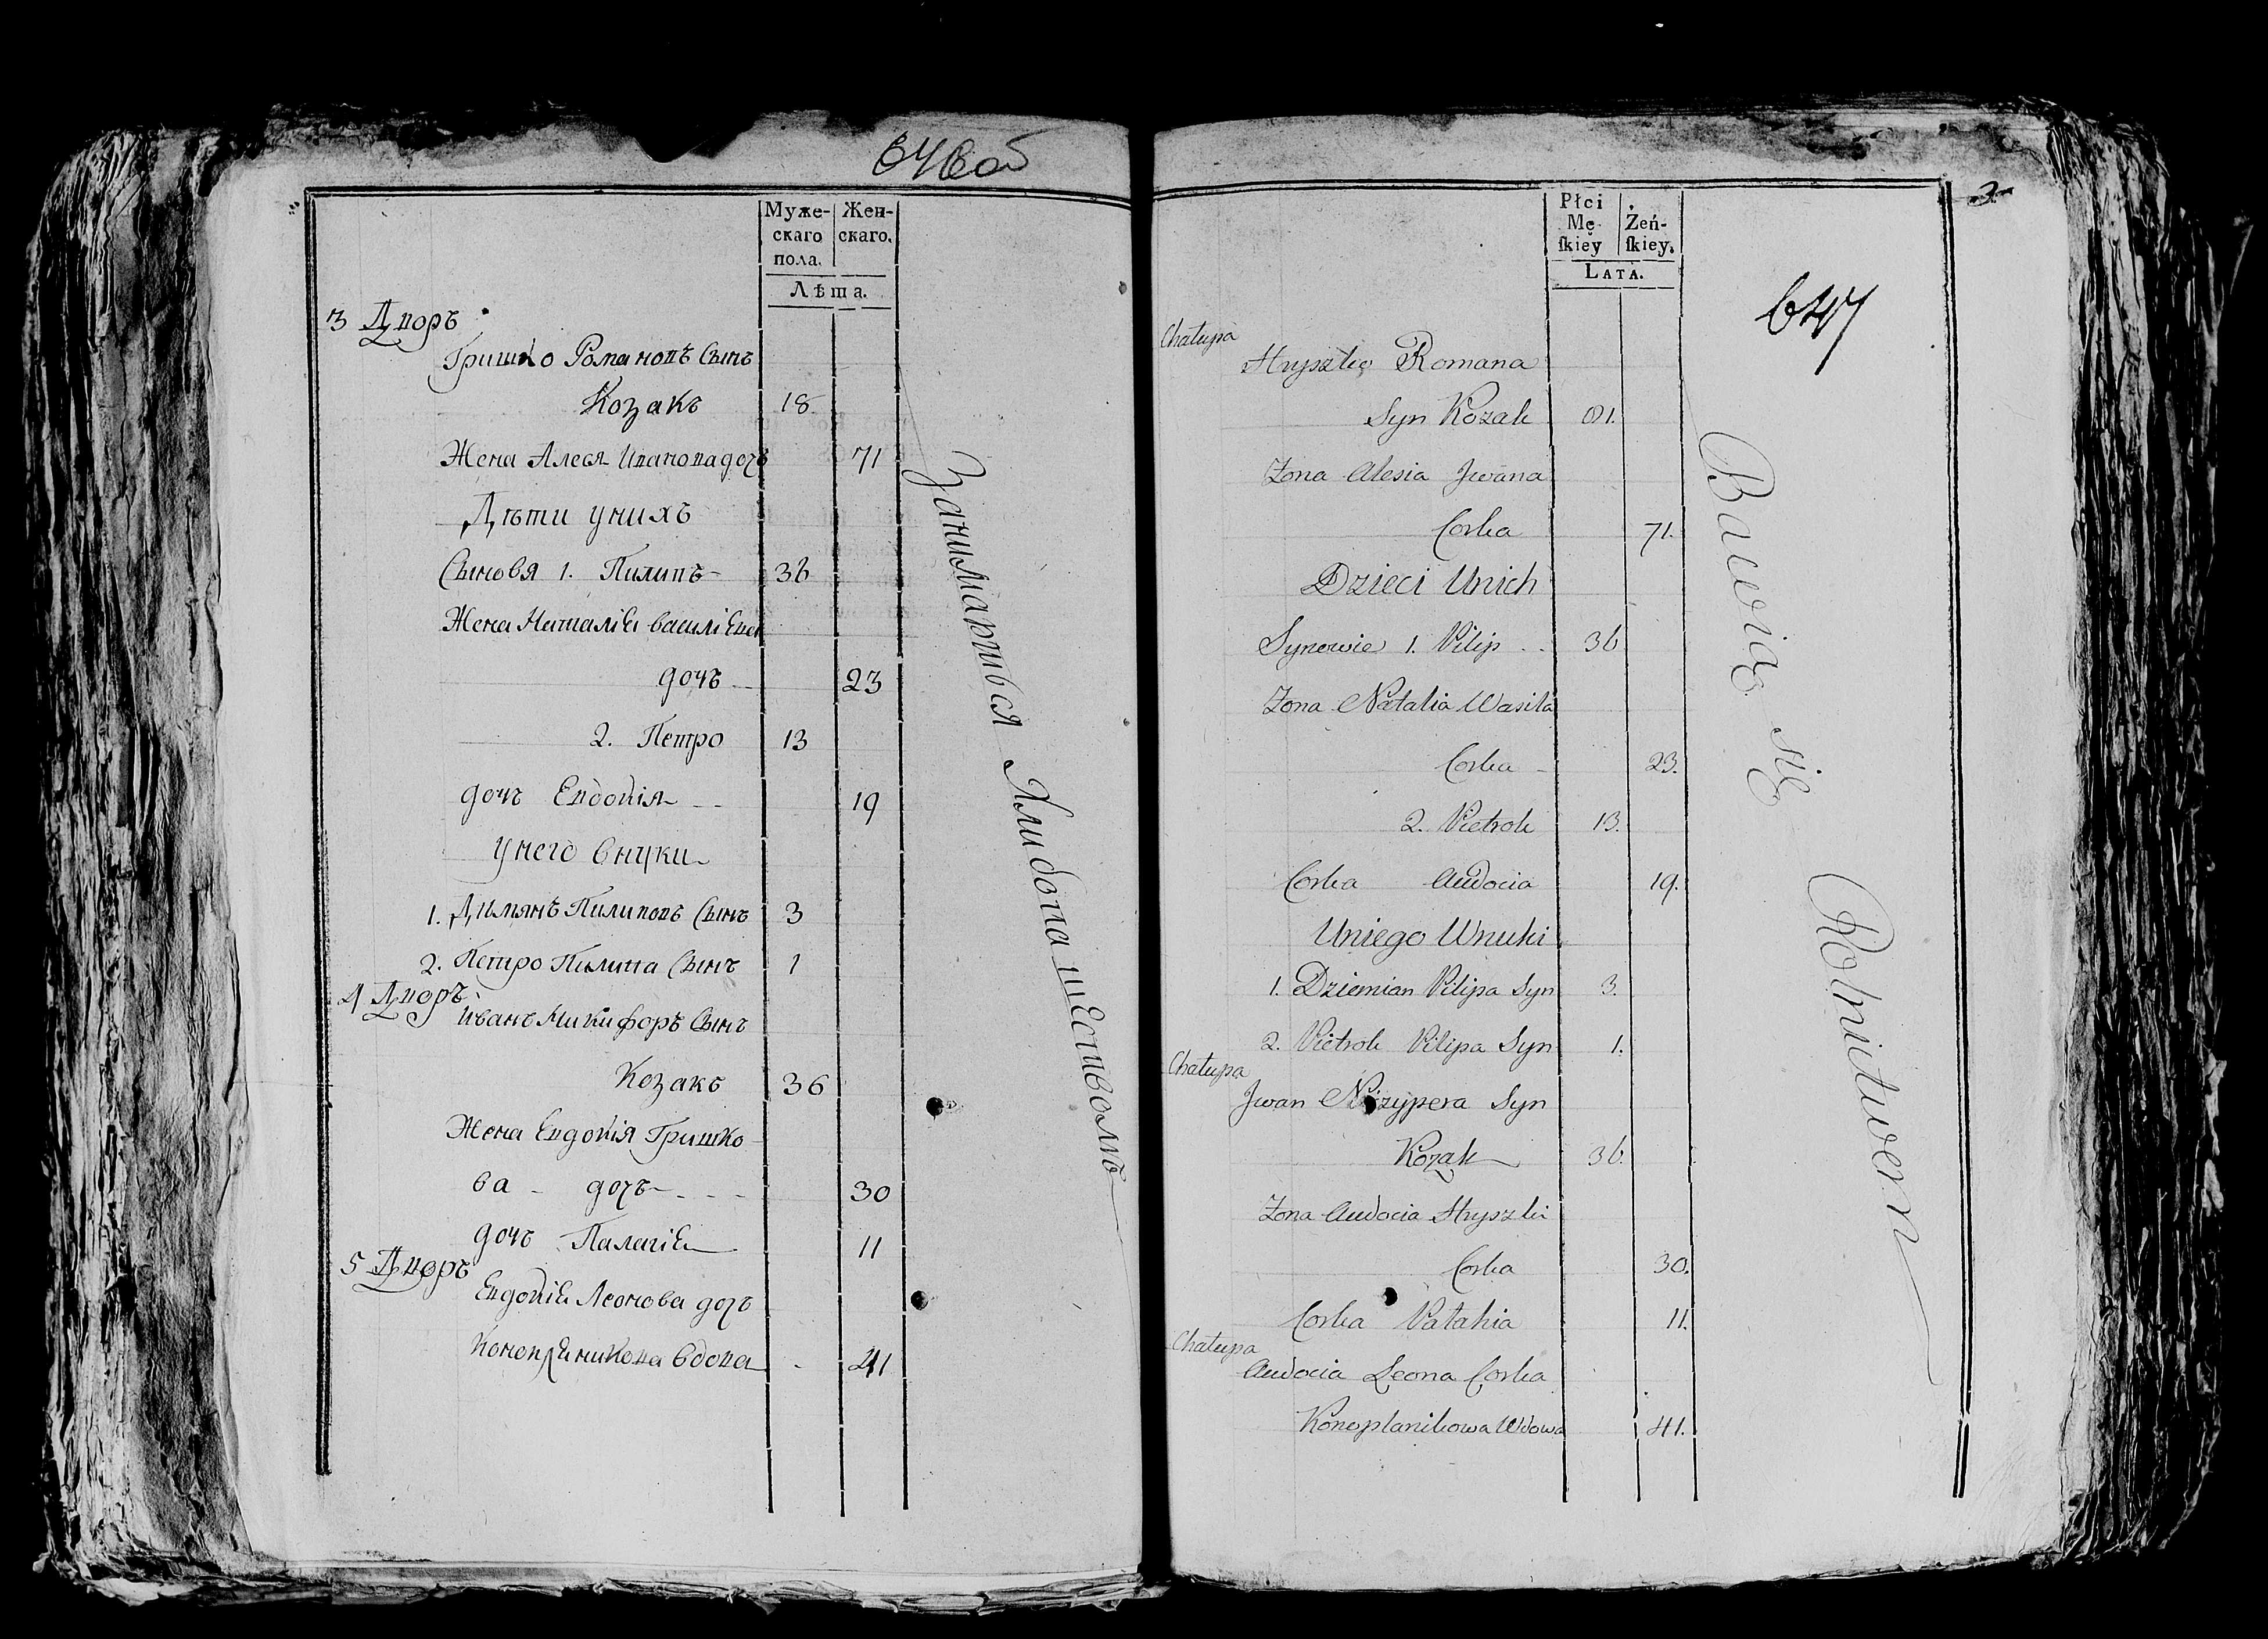 646об
Муже-
скаго
пола.
Жен-
скаго.
Лѣта.
3 Дворъ
Гришко Романовъ Сынъ
Козакъ 18
Жена Алеся Иванова дочъ 71
Дѣти унихъ
Сыновя 1. Пилипъ 36
Жена Наталія василіева
дочъ 23
2. Петро 13
дочъ Евдокія 19
унего внуки
1. Димянъ Пилиповъ Сынъ 3
2. Петро Пилипа Сынъ 1
4 Дворъ
иванъ Микифоръ Сынъ
Козакъ 36
Жена Евдокія Гришко
ва дочъ 30
дочъ Палагія 11
5 Дворъ
Евдокія Леонова дочъ
Конопляникова вдова 41
Занимаритья Хлибопашествомъ
3
647
Płci
Mę-
skiey
Żeń-
skiey.
Lata.
Chałupa
Hryszko Romana
Syn Kozak 81.
Zona Alesia Jwana
Corka 71.
Dzieci Unich
Synowie 1. Pilip 36
Zona Natalia Wasila
Corka 23.
2. Pietrok 13.
Corka Audocia 19.
Uniego Wnuki
1. Dziemian Pilipa Syn 3.
2. Pietrok Pilipa Syn 1.
Chałupa
Jwan Nizypera Syn
Kozak 36.
Zona Audocia Hryszki
Corka 30.
Corka Patahia 11.
Chałupa
Audocia Leona Corka
Konoplanikowa Wdowa 41.
Bawią się Rolnictwem